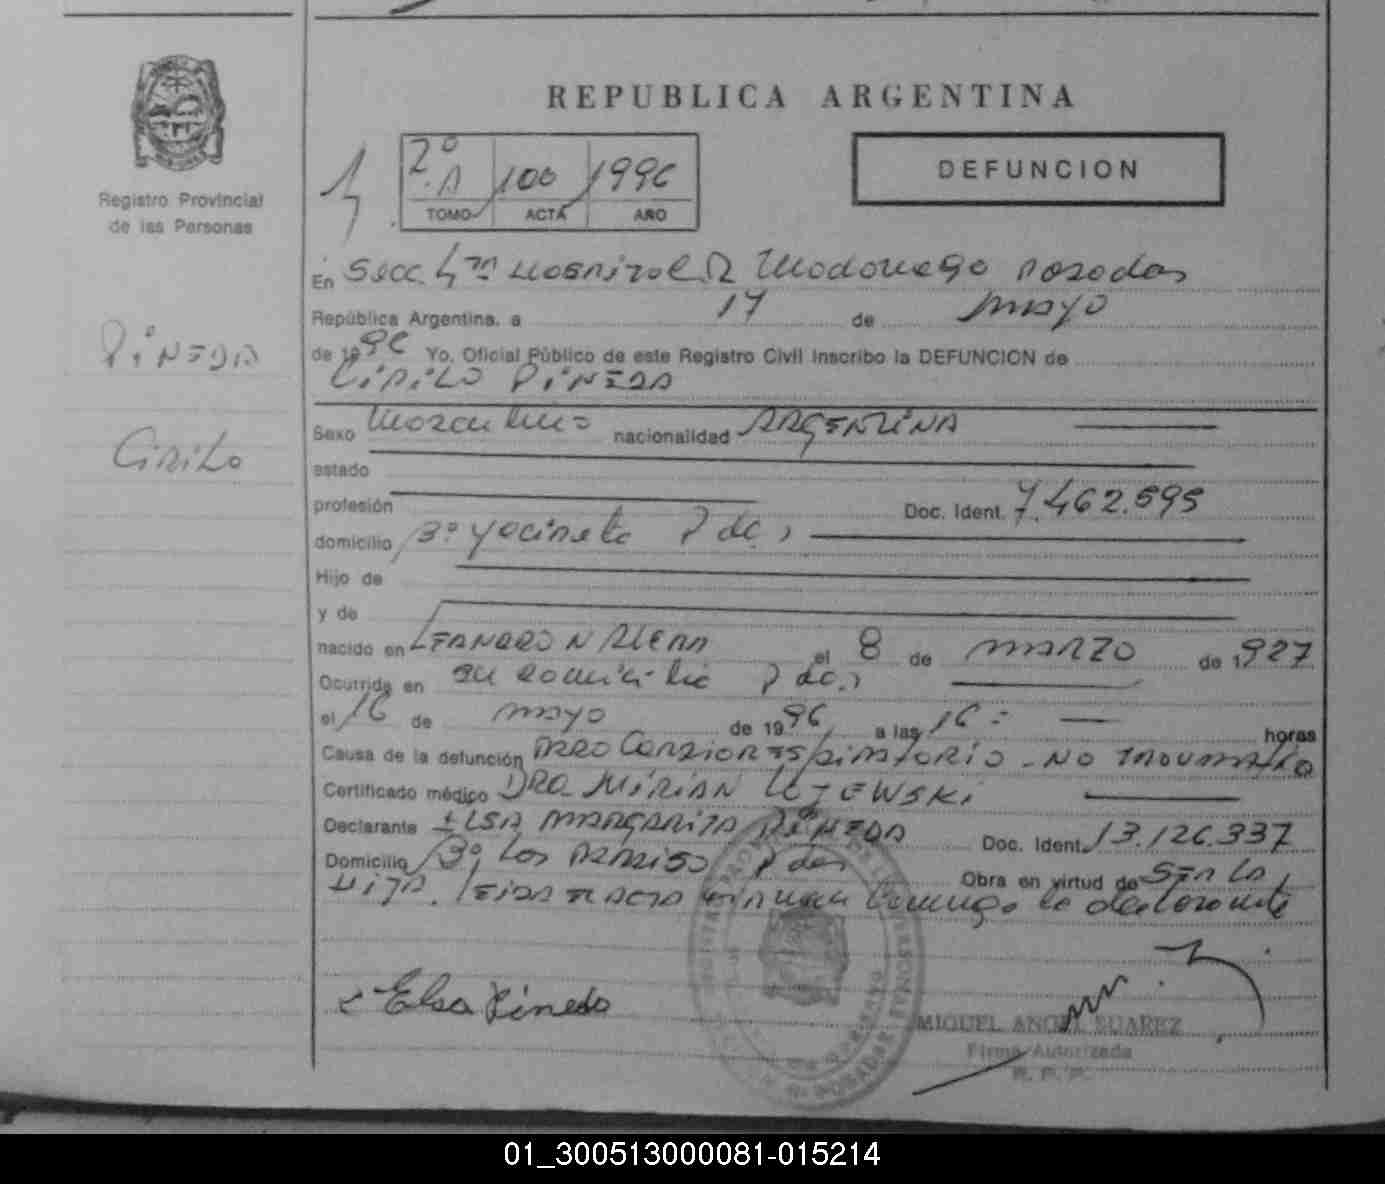 REPUBLICA ARGENTINA
Registro Provincial
de las Personas
2º A 100 1996
TOMO ACTA AÑO
DEFUNCION
En Secc. 4ta Hospital R Madariaga Posadas
República Argentina, a 17 de mayo
de 1996 Yo, Oficial Público de este Registro Civil Inscribo la DEFUNCION de
CIRILO PINEDA
PINEDA
CIRILO
Sexo Masculino nacionalidad ARGENTINA
estado
profesión Doc. Ident. 7.462.595
domicilio Bº Yacireta Pdas
Hijo de
y de
nacido en LEANDRO N ALEM el 8 de MARZO de 1927
Ocurrida en su domicilio Pdas.
el 16 de mayo de 1996 a las 16 horas
Causa de la defunción PARO CARDIORESPIRATORIO - NO TRAUMATICO
Certificado médico DRA. MIRIAN
Declarante ELSA MARGARITA PINEDA Doc. Ident. 13.126.337
Domicilio Bº Los Pdas Obra en virtud de SER LA
HIJA. LEIDA EL ACTA FIRMAN conmigo la declarante
Elsa Pineda
MIGUEL ANGEL SUAREZ
Firma Autorizada
R. P. P.
01_300513000081-015214